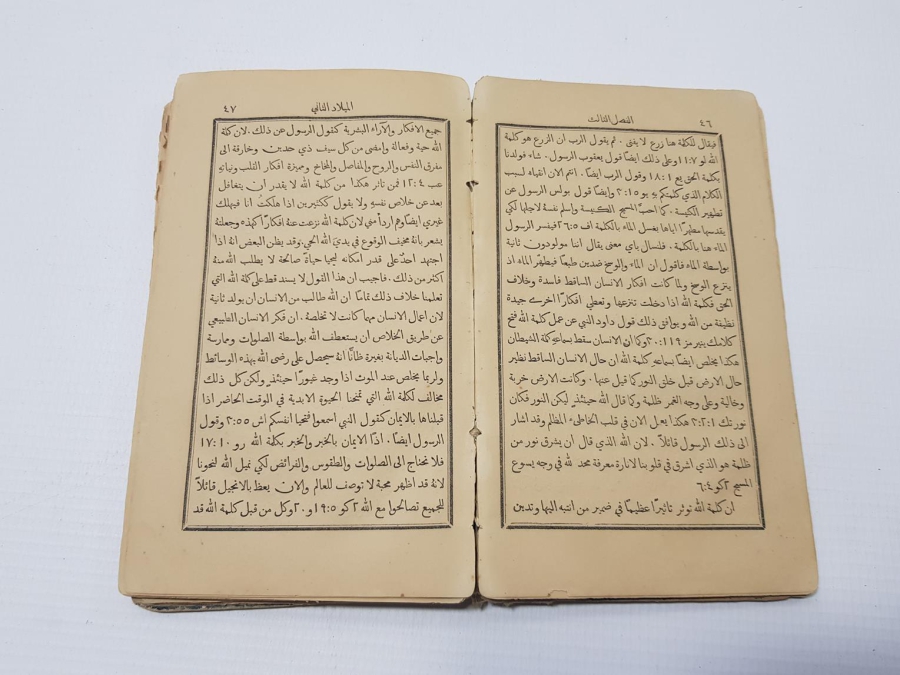 ٤٦
الفصل الثالث
فيقال للكلمة هنا زرع لا يفنى. ثم يقول الرب ان الزرع هو كلمة
الله لو ٨:١١ وعلى ذلك ايضًا قول يعقوب الرسول. شاء فولدنا
بكلمة الحق يع ١:١٨ وقول الرب ايضًا. انتم الان انقياء لسبب
الكلام الذي كلمتكم به يو ١٥:٣ وايضًا قول بولس الرسول عن
تطهير الكنيسة. كما احبَّ المسيح الكنيسة واسلم نفسهُ لاجلها لكي
يقدسها مطهرًا اياها بغسل الماء بالكلمة اف ٥:٢٦ فيفسر الرسول
الماء هنا بالكلمة. فلنسال باي معنى يقال اننا مولودون ثانية
بواسطة الماء فاقول ان الماء والوسخ ضدين طبعًا فيطهر الماء اذ
ينزع الوسخ ولما كانت افكار الانسان الساقط فاسدة وخلاف
الحق فكلمة الله اذا دخلت تنزعها وتعطي افكارًا اخرى جيدة
نظيفة من الله ويوافق ذلك قول داود النبي عن عمل كلمة الله فتح
كلامك ينير مز ١١٩:١٣٠ وكما ان الانسان سقط بسماعهِ كلمة الشيطان
هكذا يخلص ايضًا بسماعهِ كلمة الله ان حال الانسان الساقط نظير
حال الارض قبل خلق النور كما قيل عنها. وكانت الارض خربة
وخالية وعلى وجه الغمر ظلمة وكما قال الله حينئذٍ ليكن النور فكان
نور تك ١:٢و٣ هكذا يعمل الان في قلب الخاطىء المظلم وقد اشار
الى ذلك الرسول قائلًا. لان الله الذي قال ان يشرق نور من
ظلمة هو الذي اشرق في قلوبنا لانارة معرفة مجد لله في وجه يسوع
المسيح ٢كو ٤:٦
ان كلمة الله توثر تاثيرًا عظيمًا في ضمير من انتبه اليها وتدين
الميلاد الثاني
٤٧
جميع الافكار والآراء البشرية كقول الرسول عن ذلك. لان كلمة
الله حية وفعالة وامضى من كل سيف ذي حدين. وخارقة الى
مفرق النفس والروح والمفاصل والمخاخ ومميزة افكار القلب ونياتهِ
عب ٤:١٢ فمن تاثر هكذا من كلمة الله لا يقدر ان يتغافل
بعد عن خلاص نفسهِ ولا يقول ككثيرين اذا هلكتُ انا فيهلك
غيري ايضًا وهم اردأُ مني لان كلمة الله نزعت عنهُ افكارًا كهذه وجعلتهُ
يشعر بانهُ مخيف الوقوع في يدي الله الحي. وقد يظن البعض انهُ اذا
اجتهد احدٌ على قدر امكانه ليحيا حياةً صالحة لا يطلب الله منهُ
اكثر من ذلك. فاجيب ان هذا القول لا يسند قط على كلمة الله التي
تعلمنا خلاف ذلك تمامًا ان الله طالب من الانسان ان يولد ثانية
لان اعمال الانسان مهما كانت لا تخلصهُ. ان فكر الانسان الطبيعي
عن طريق الخلاص ان يستعطف الله بواسطة الصلوات وممارسة
واجبات الديانة بغيرة ظانًّا انهُ سيحصل على رضى الله بهذه الوسائط
ولربما يخلص عند الموت اذا وجد غيورًا حينئذٍ ولكن كل ذلك
مخالف لكلمة الله التي تمنحنا الحيوة الابدية في الوقت الحاضر اذا
قبلناها بالايمان كقول النبي اسمعوا فتحيا انفسكم اش ٥٥:٣ وقول
الرسول ايضًا. اذًا الايمان بالخبر والخبر بكلمة الله رو ١٠:١٧
فلا نحتاج الى الصلوات والطقوس والفرائض لكي نميل الله لنحونا
لانهُ قد اظهر محبة لا توصف للعالم والان يعظ بالانجيل قائلًا
للجميع تصالحوا مع الله ٢كو ٥:١٩و٢٠ وكل من قبل كلمة الله قد